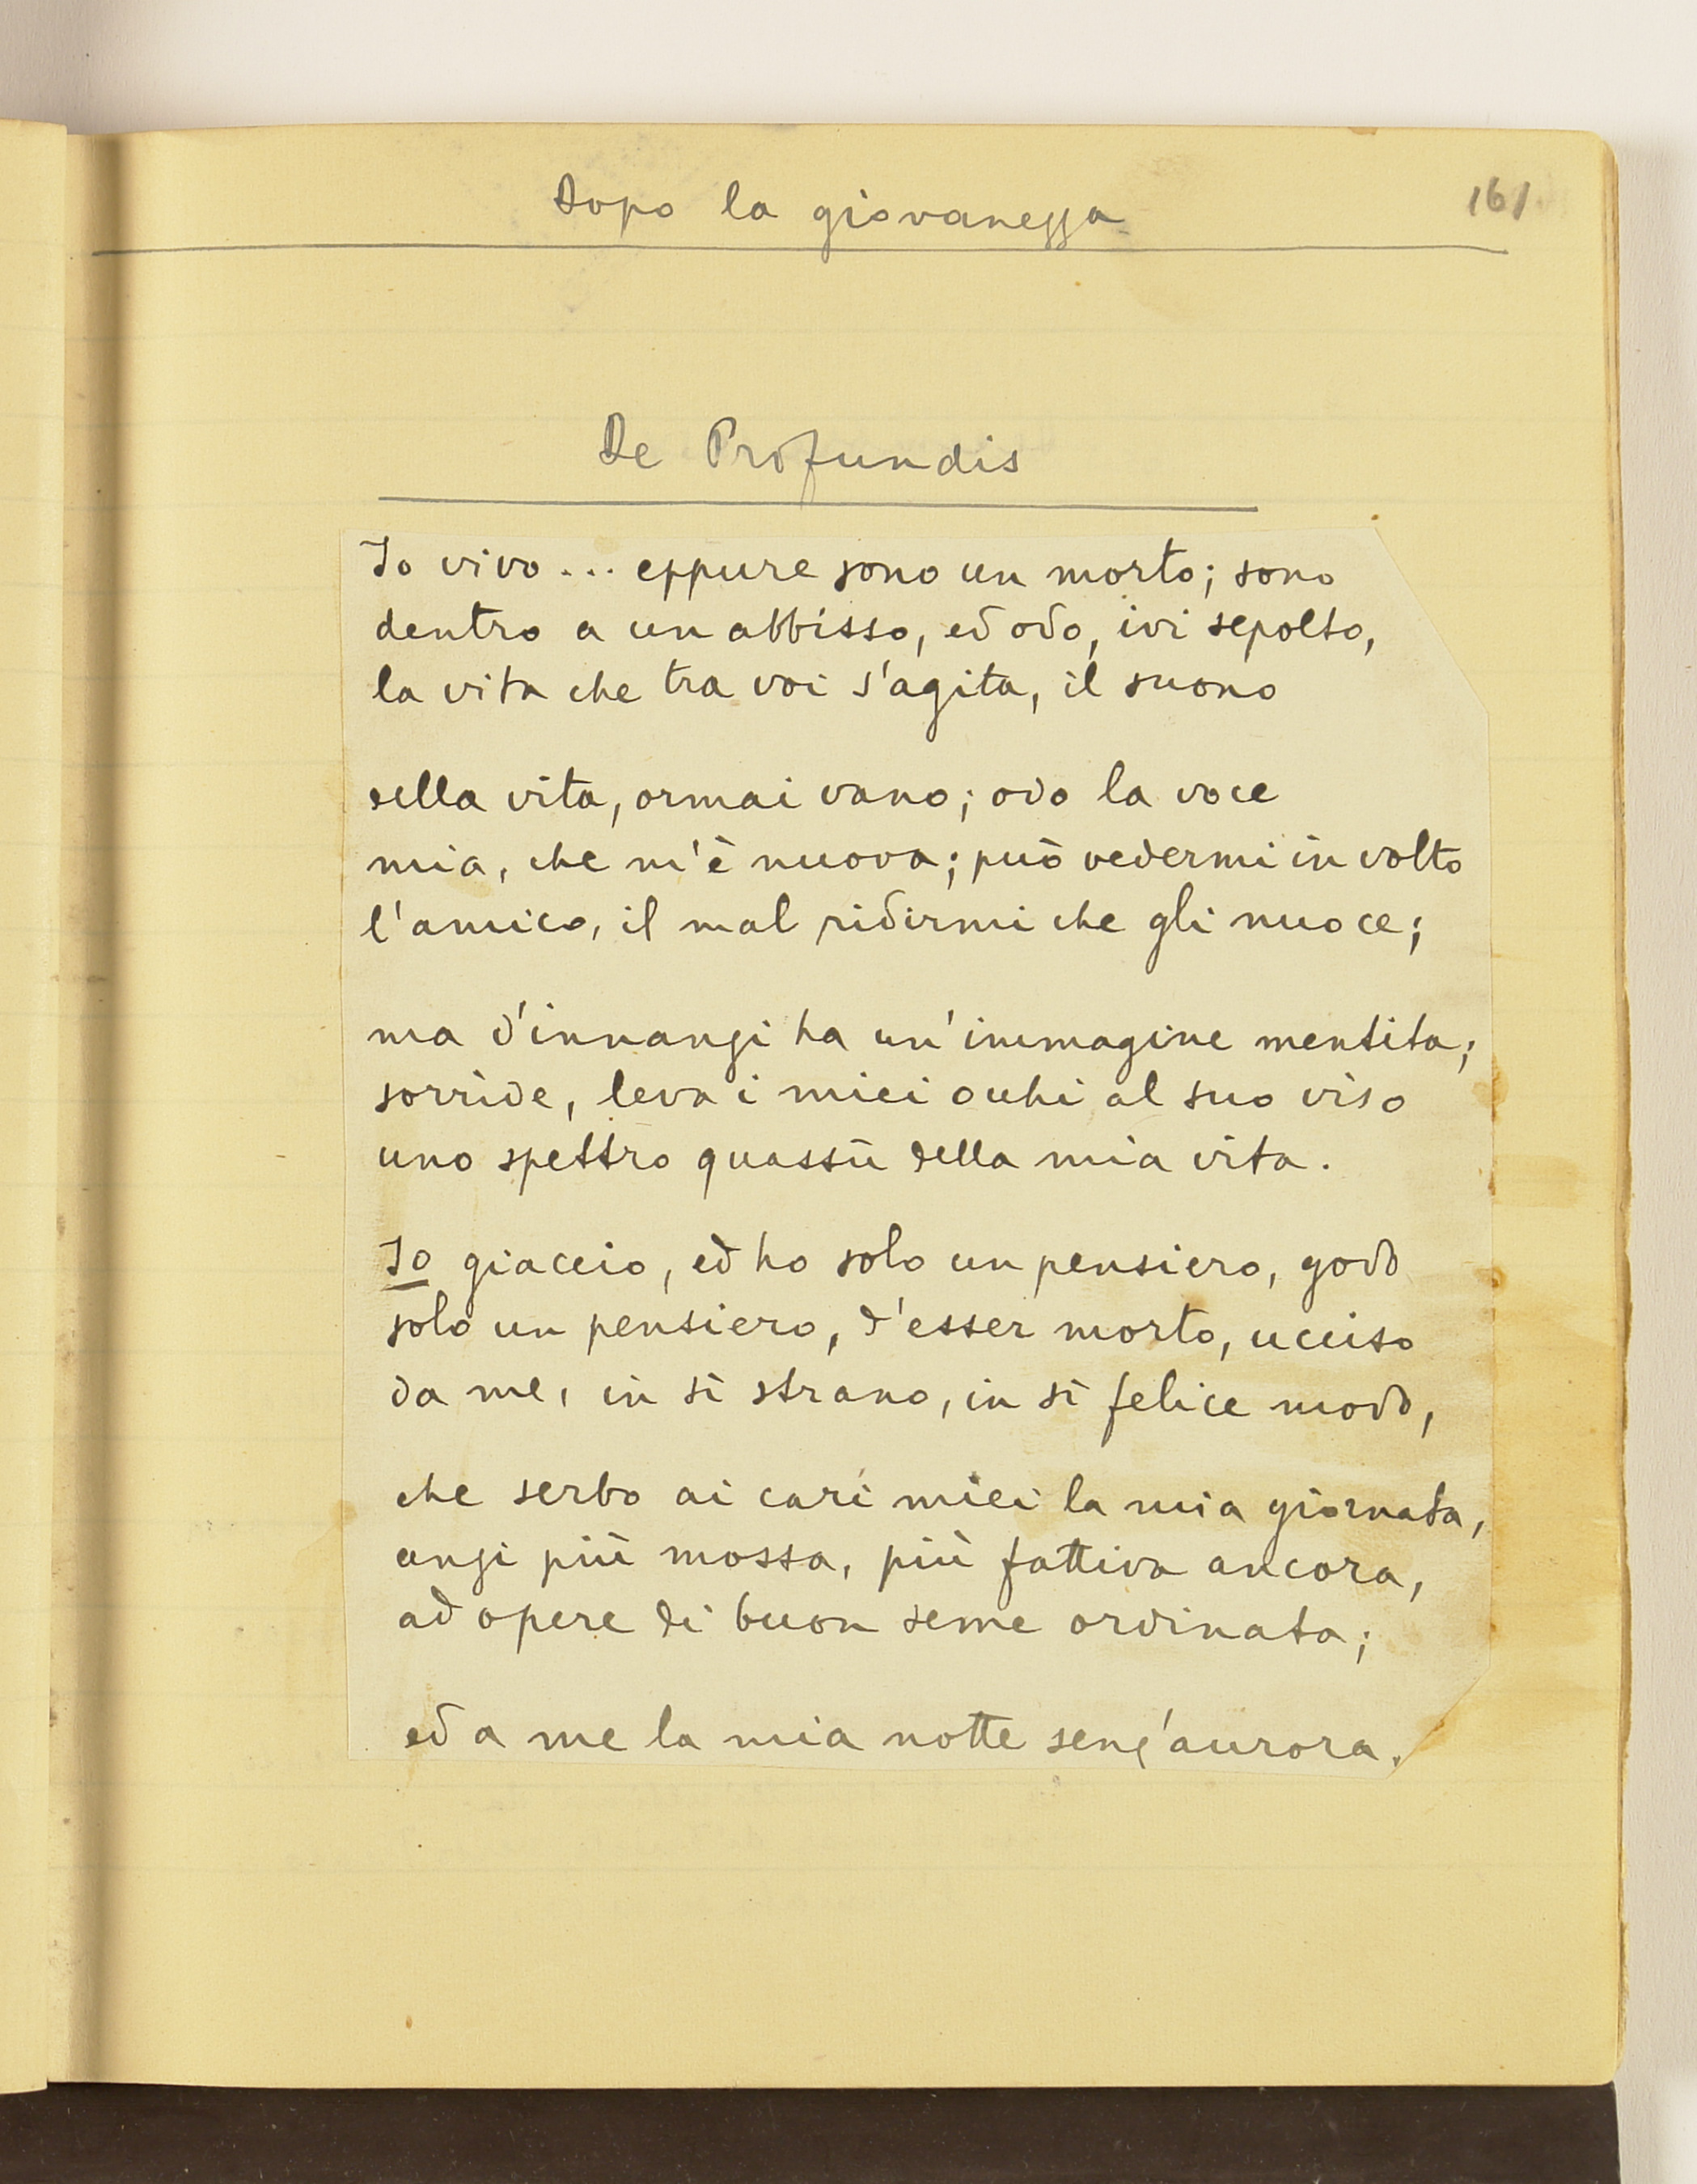 Dopo la giovanezza
161.
De Profundis
Io vivo... eppure sono un morto; sono
dentro a un abbisso, ed odo, ivi sepolto,
la vita che tra voi s'agita, il suono
della vita, ormai vano; odo la voce
mia, che m'è nuova; può vedermi in volto
l'amico, il mal ridirmi che gli nuoce;
ma d'innanzi ha un'immagine mentita;
sorride, leva i miei occhi al suo viso
uno spettro quassù della mia vita.
Io giaccio, ed ho solo un pensiero, godo
solo un pensiero, d'esser morto, ucciso
da me, in sì strano, in sì felice modo,
che serbo ai cari miei la mia giornata,
anzi più mossa, più fattiva ancora,
ad opere di buon seme ordinata;
ed a me la mia notte senz'aurora.